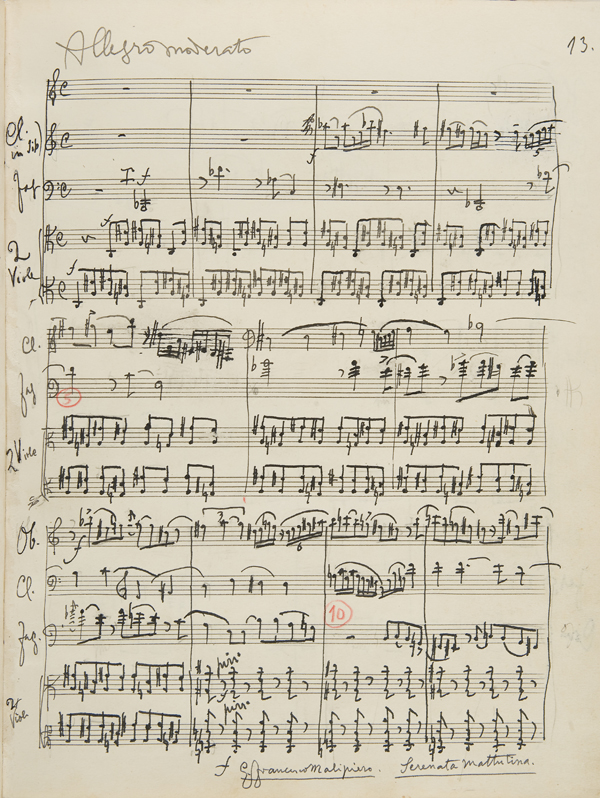 Allegro moderato 13.
Cl.
in sib)
Fag
f
f
f
2
Viole
5
Cl.
fag
5
2 Viole
Ob.
3
3
6
Cl.
fag.
10
pizz.
pizz.
2
Viole
f G. Francesco Malipiero. Serenata mattutina.